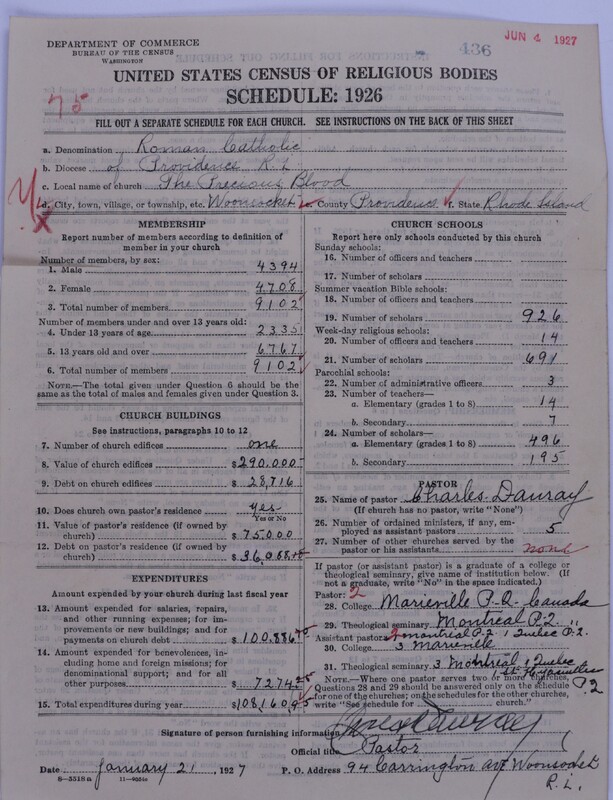 JUN 4 1927
436
DEPARTMENT OF COMMERCE
BUREAU OF THE CENSUS
WASHINGTON
UNITED STATES CENSUS OF RELIGIOUS BODIES
SCHEDULE: 1926
75
FILL OUT A SEPARATE SCHEDULE FOR EACH CHURCH. SEE INSTRUCTIONS ON THE BACK OF THIS SHEET
a. Denomination Roman Catholic
b. Diocese of Providence R.I.
c. Local name of church The Precious Blood
d. City, town, village, or township, etc. Woonsocket e. County Providence f. State Rhode Island
MEMBERSHIP
Report number of members according to definition of
member in your church
Number of members, by sex:
1. Male 4394
2. Female 4708
3. Total number of members 9102
Number of members under and over 13 years old:
4. Under 13 years of age 2335
5. 13 years old and over 6767
6. Total number of members 9102
NOTE.—The total given under Question 6 should be
same as the total of males and females given under Question 3.
CHURCH BUILDINGS
See instructions, paragraphs 10 to 12
7. Number of church edifices one
8. Value of church edifices $290.000
9. Debt on church edifices $28,716
10. Does church own pastor's residence yes
Yes or No
11. Value of pastor's residence (if owned by
church) $75.000
12. Debt on pastor's residence (if owned by
church) $36,088
EXPENDITURES
Amount expended by your church during last fiscal year
13. Amount expended for salaries, repairs,
and other running expenses; for im-
provements or new buildings; and for
payments on church debt $100.886
14. Amount expended for benevolences,
including home and foreign missions; for
denominational support; and for all
other purposes $7274
15. Total expenditures during year $108160
CHURCH SCHOOLS
Report here only schools conducted by this church
Sunday schools:
16. Number of officers and teachers
17. Number of scholars
Summer vacation Bible schools:
18. Number of officers and teachers
19. Number of scholars 926
Week-day religious schools:
20. Number of officers and teachers 14
21. Number of scholars 691
Parochial schools:
22. Number of administrative officers 3
23. Number of teachers—
a. Elementary (grades 1 to 8) 14
b. Secondary 7
24. Number of scholars—
a. Elementary (grades 1 to 8) 496
b. Secondary 195
PASTOR
25. Name of pastor Charles Dauray
(If church has no pastor, write "None")
26. Number of ordained ministers, if any, em-
ployed as assistant pastors 5
27. Number of other churches served by the
pastor or his assistants none
If pastor (or assistant pastor) is a graduate of a college or
theological seminary, give name of institution below. (If
not a graduate, write "No" in the space indicated.)
Pastor: 2
28. College Marieville P.Q. Canada
29. Theological seminary Montreal P.Q. "
Assistant pastor: 2 Montreal P.Q. 1 Quebec P.Q.
30. College 3 Marieville
31. Theological seminary 3 Montreal 1 Quebec
NOTE.—Where one pastor serves two or more churches,
Questions 28 and 29 should be answered only on the schedule
for one of the churches; on the schedules for the other churches,
write "See schedule for church."
Signature of person furnishing information
Official title Pastor
Date January 21, 1927 P. O. Address 94 Carrington Av Woonsocket
R.I.
8—3518a